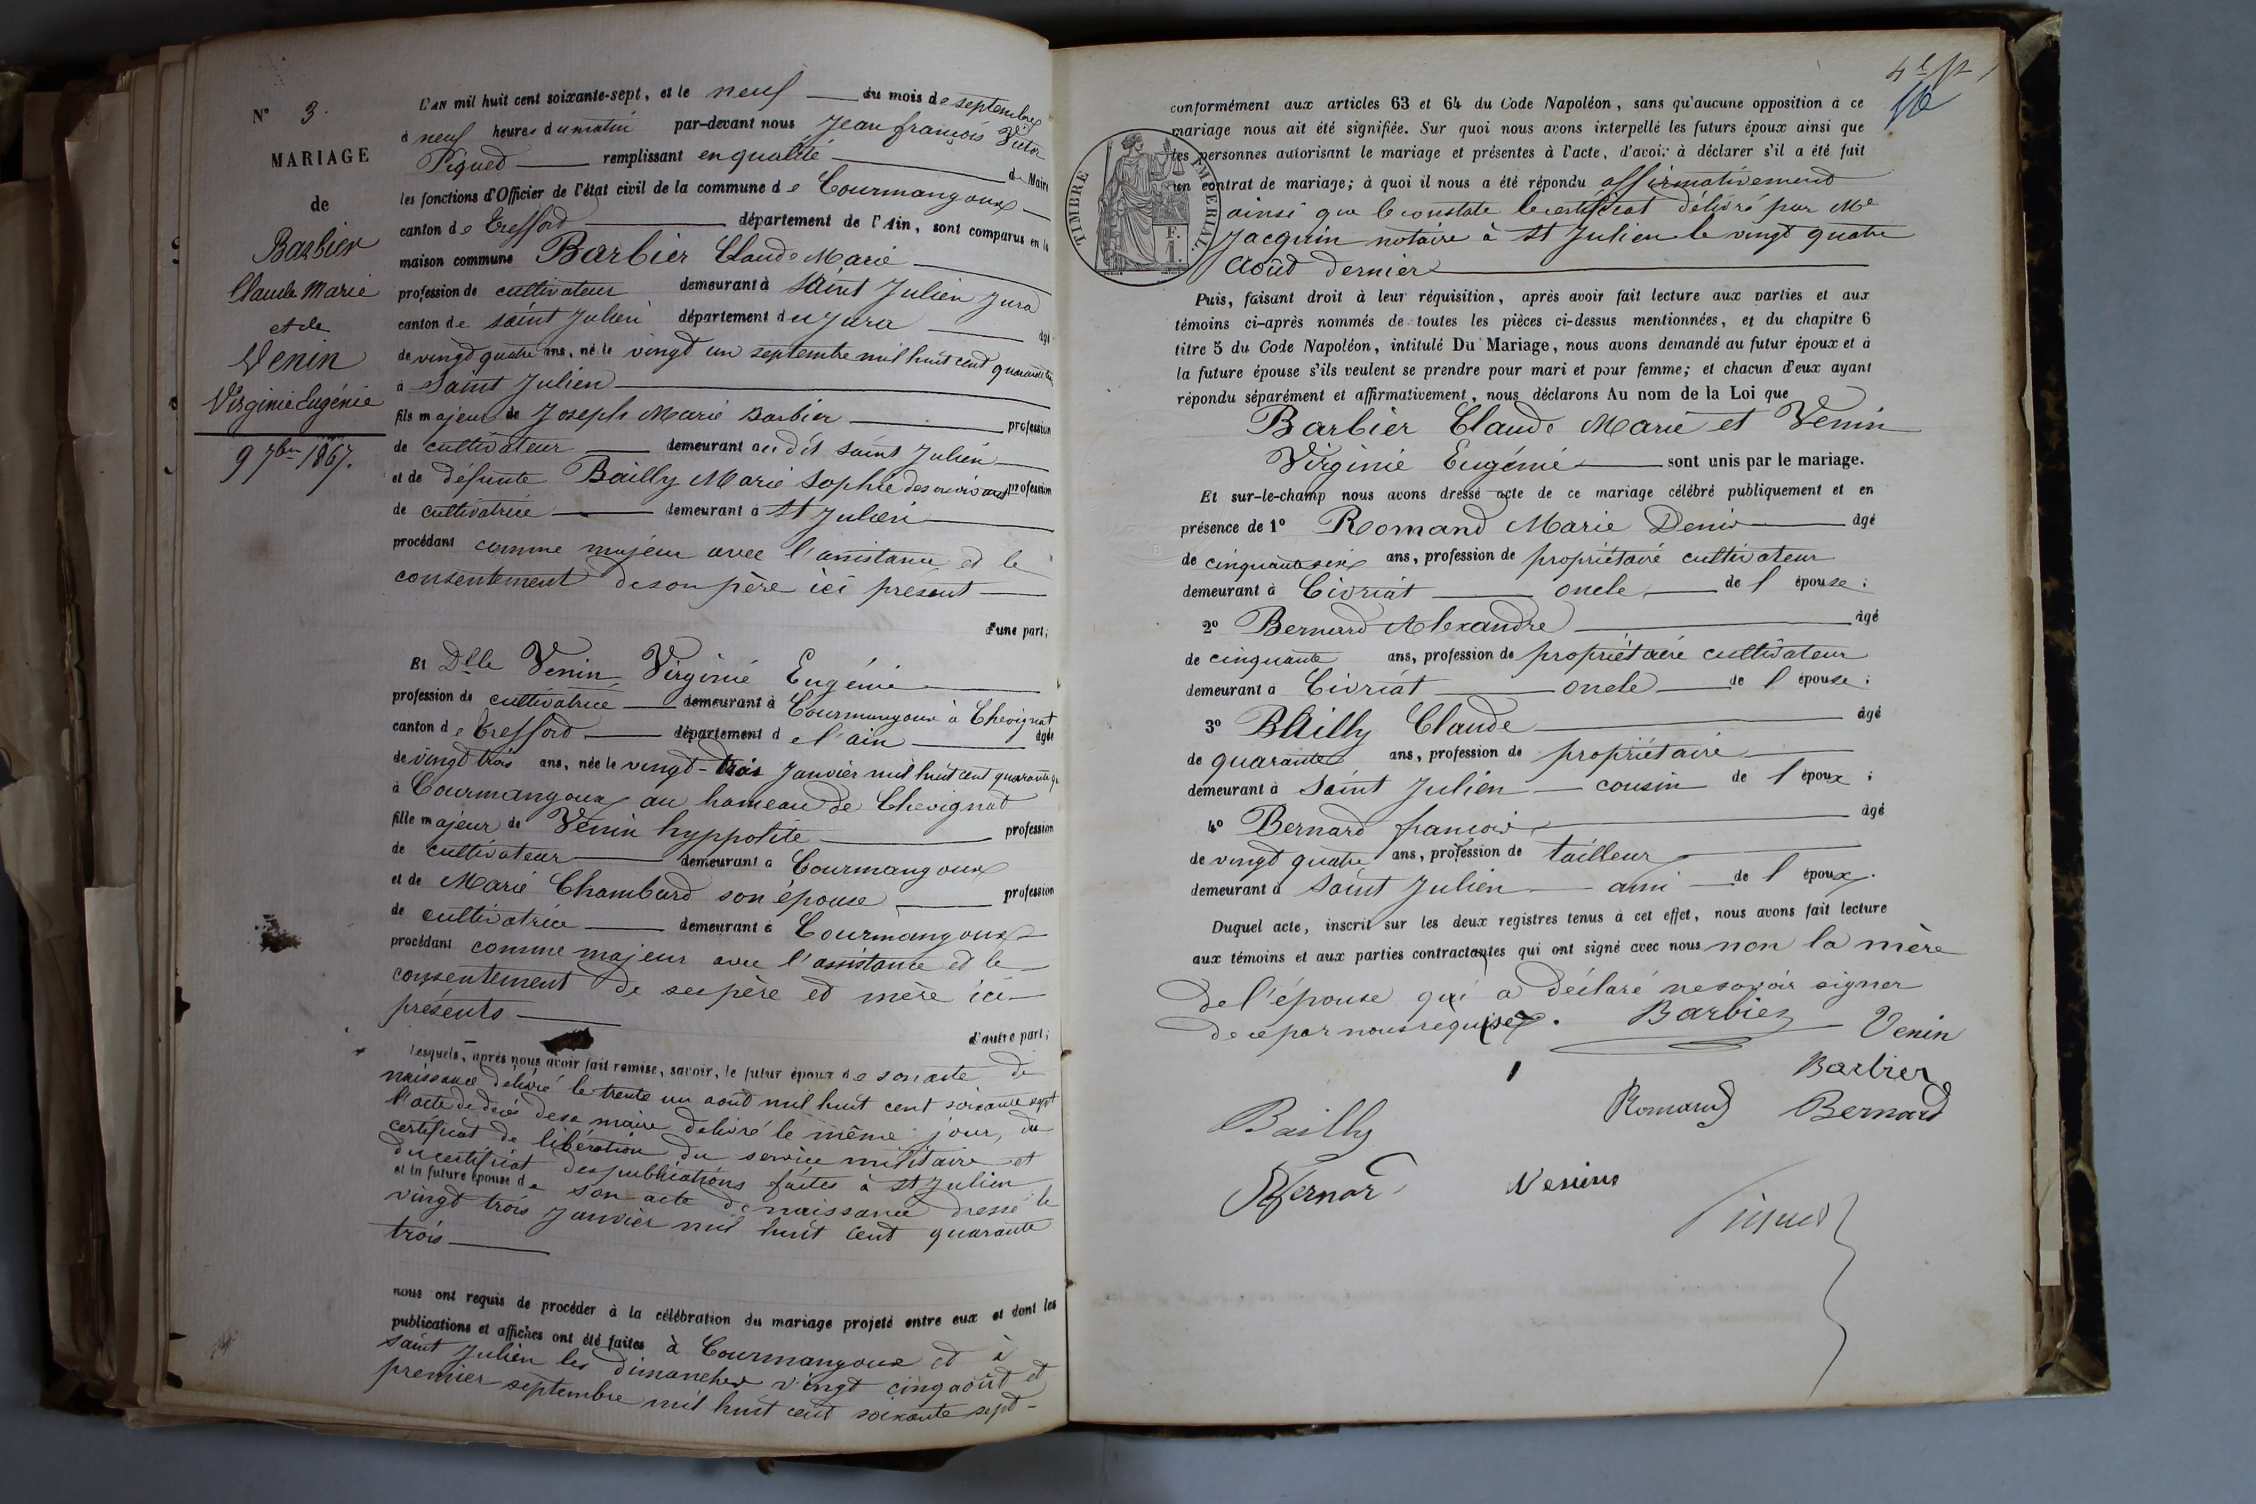 N° 3.
MARIAGE
de
Barbier
Claude Marie
et de
Venin
Virginie Eugénie
9 7bre 1867.
L'AN mil huit cent soixante-sept, et le neuf du mois de septembre
à neuf heures du matin par-devant nous Jean françois Victor
Piqued remplissant en qualité de Maire
les fonctions d'Officier de l'état civil de la commune de Courmangoux
canton de Trefford département de l'Ain, sont comparus en la
maison commune Barbier Claude Marie
profession de cultivateur demeurant à Saint Julien Jura
canton de saint Julien département du Jura âgé
de vingt quatre ans, né le vingt un septembre mil huit cent quarante
à Saint Julien
fils majeur de Joseph Marie Barbier profession
de cultivateur demeurant au dit saint Julien
et de défunte Bailly Marie Sophie de son vivant profession
de cultivatrice demeurant à St Julien
procédant comme majeur avec l'assistance et le
consentement de son père ici présent
d'une part;
Et Dlle Venin Virginie Eugénie
profession de cultivatrice demeurant à Courmangoux à Chevignat
canton de Trefford département de l'ain âgée
de vingt trois ans, née le vingt-trois Janvier mil huit cent quarante
à Courmangoux au hameau de Chevignat
fille majeur de Venin hyppolite profession
de cultivateur demeurant à Courmangoux
et de Marie Chambard son épouse profession
de cultivatrice demeurant à Courmangoux
procédant comme majeur avec l'assistance et le
consentement de ses père et mère ici
présents
d'autre part;
Lesquels, après nous avoir fait remise, savoir, le futur époux de son acte de
naissance délivré le trente un août mil huit cent soixante sept
l'acte de décès de sa mère délivré le même jour, du
certificat de libération du service militaire et
du certificat des publications faites à St Julien
et la future épouse de son acte de naissance dressé le
vingt trois Janvier mil huit cent quarante
trois
nous ont requis de procéder à la célébration du mariage projeté entre eux et dont les
publications et affiches ont été faites à Courmangoux et à
saint Julien les dimanches vingt cinq août et
premier septembre mil huit cent soixante sept
conformément aux articles 63 et 64 du Code Napoléon, sans qu'aucune opposition à ce
mariage nous ait été signifiée. Sur quoi nous avons interpellé les futurs époux ainsi que
les personnes autorisant le mariage et présentes à l'acte, d'avoir à déclarer s'il a été fait
un contrat de mariage; à quoi il nous a été répondu affirmativement
ainsi que le constate le certificat délivré par Me
Jacquin notaire à St Julien le vingt quatre
Août dernier
TIMBRE IMPERIAL
F.
1.
Puis, faisant droit à leur réquisition, après avoir fait lecture aux parties et aux
témoins ci-après nommés de toutes les pièces ci-dessus mentionnées, et du chapitre 6
titre 5 du Code Napoléon, intitulé Du Mariage, nous avons demandé au futur époux et à
la future épouse s'ils veulent se prendre pour mari et pour femme; et chacun d'eux ayant
répondu séparément et affirmativement, nous déclarons Au nom de la Loi que
Barbier Claude Marie et Venin
Virginie Eugénie sont unis par le mariage.
Et sur-le-champ nous avons dressé acte de ce mariage célébré publiquement et en
présence de 1° Romand Marie Denis âgé
de cinquante six ans, profession de propriétaire cultivateur
demeurant à Civriat oncle de l'épouse;
2° Bernard Alexandre âgé
de cinquante ans, profession de propriétaire cultivateur
demeurant à Civriat oncle de l'épouse;
3° BAilly Claude âgé
de quarante ans, profession de propriétaire
demeurant à Saint Julien cousin de l'époux;
4° Bernard françois âgé
de vingt quatre ans, profession de tailleur
demeurant à Saint Julien ami de l'époux.
Duquel acte, inscrit sur les deux registres tenus à cet effet, nous avons fait lecture
aux témoins et aux parties contractantes qui ont signé avec nous non la mère
de l'épouse qui a déclaré ne savoir signer
de ce par nous requise.
Barbier Venin
Barbier
Romand Bernard
Bailly
Bernard Venin
Piqued